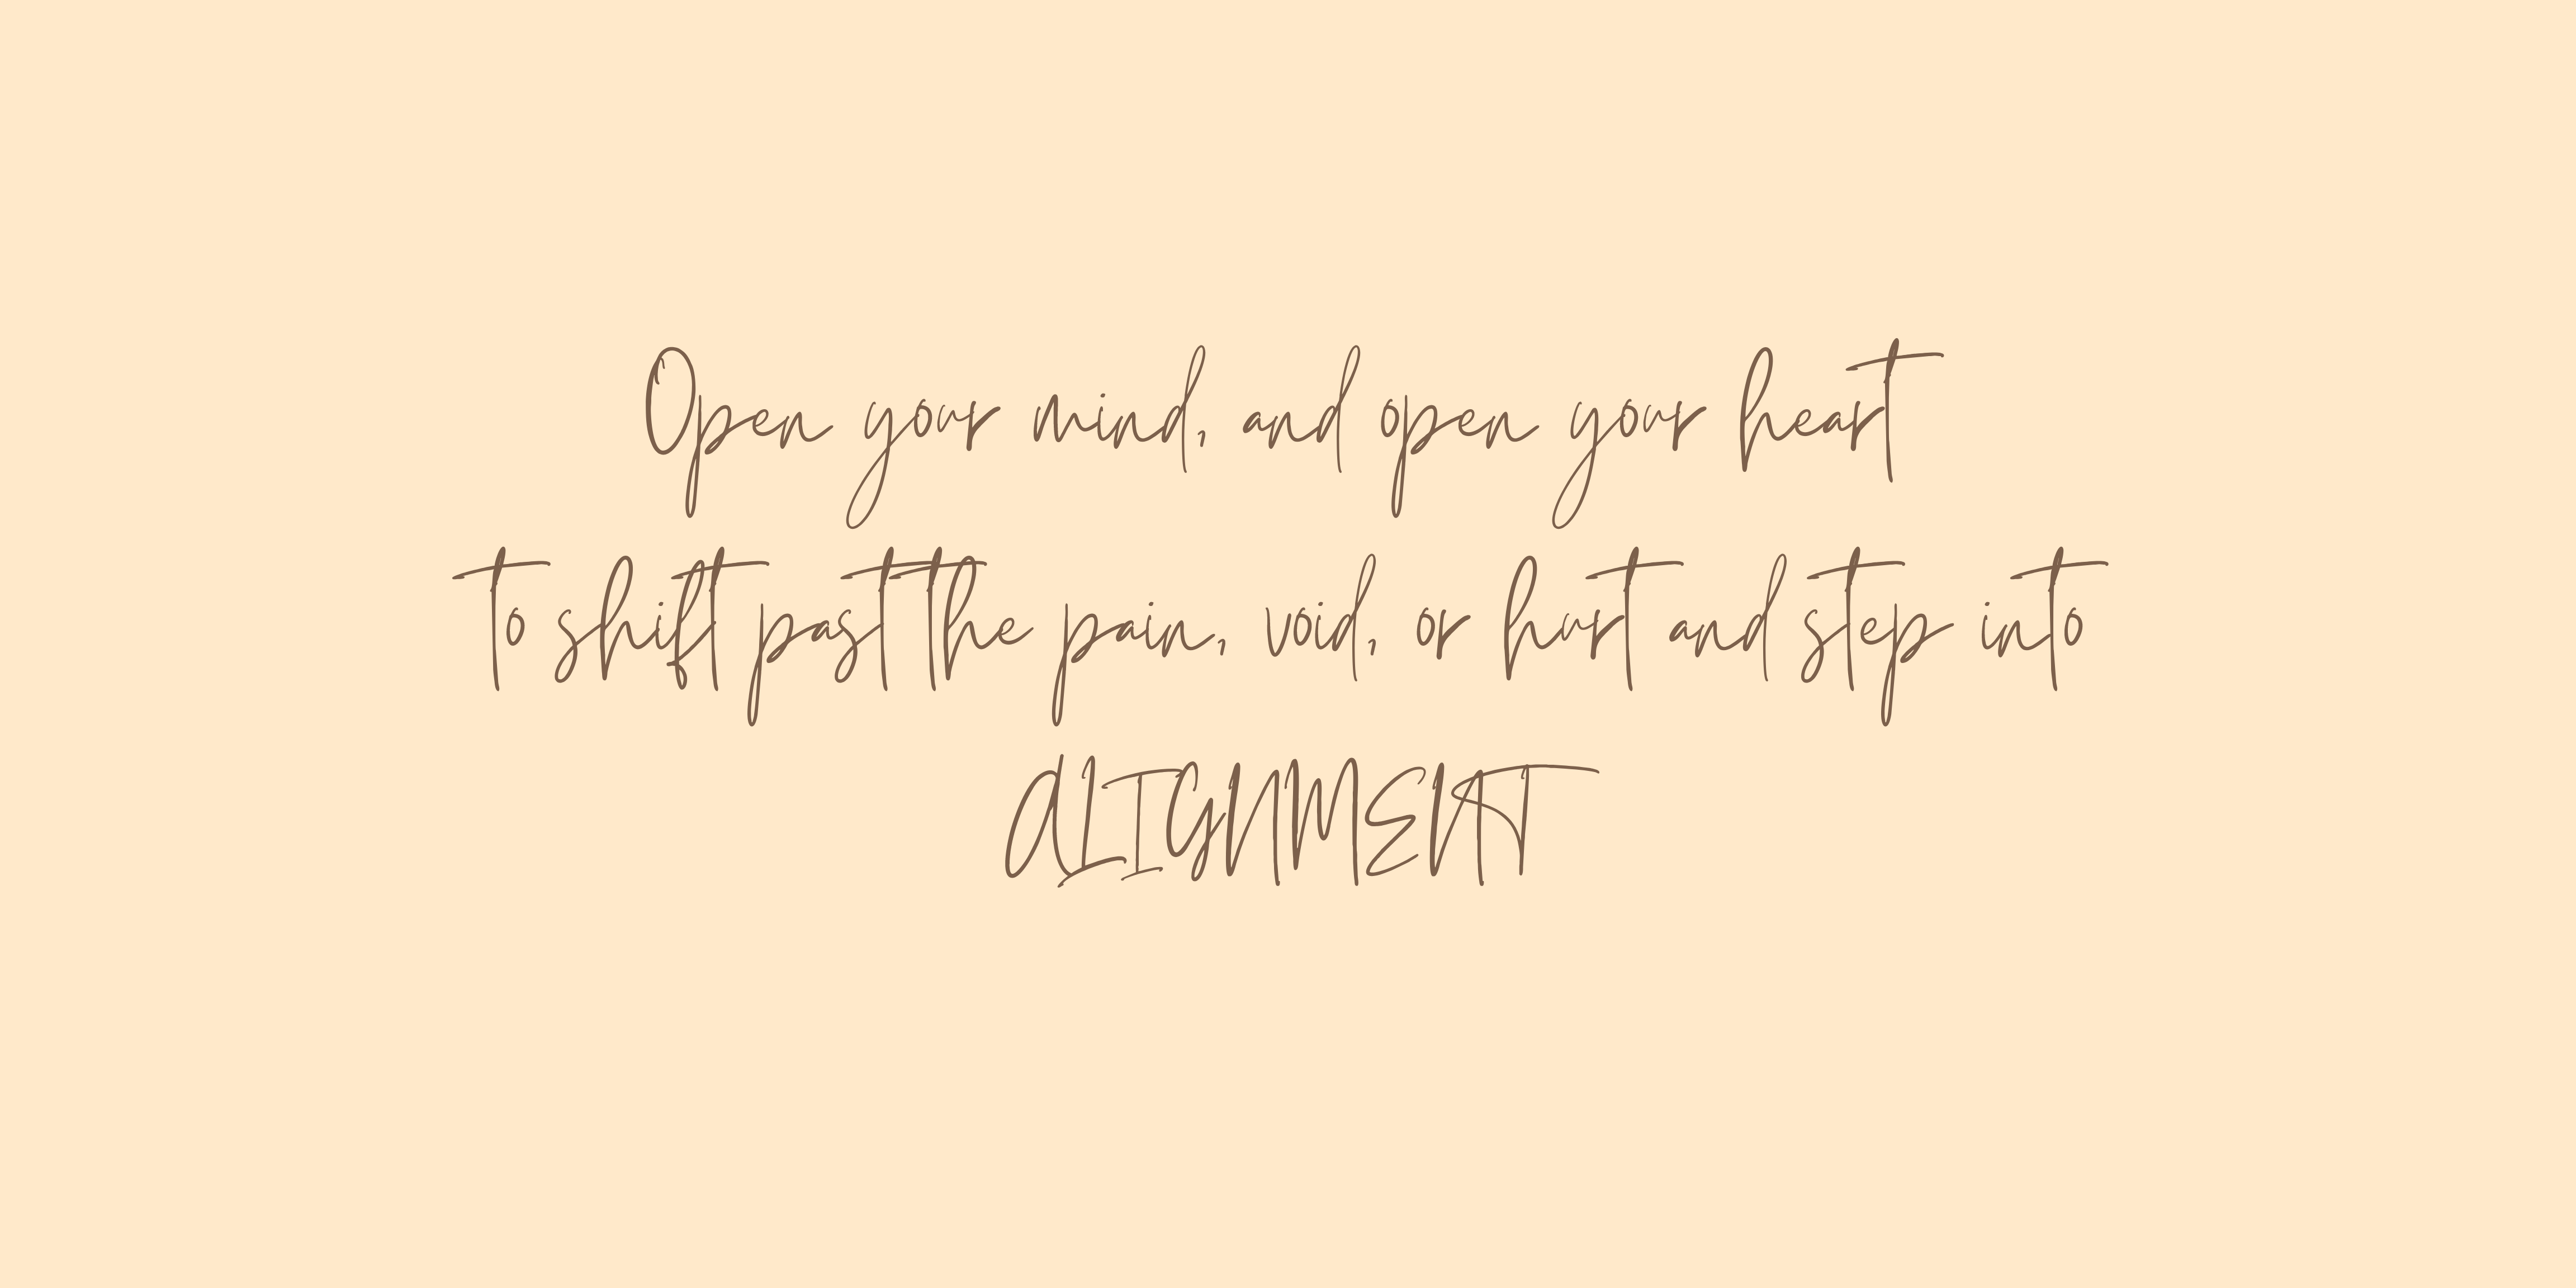 Open your mind, and open your heart
to shift past the pain, void, or hurt and step into
ALIGNMENT